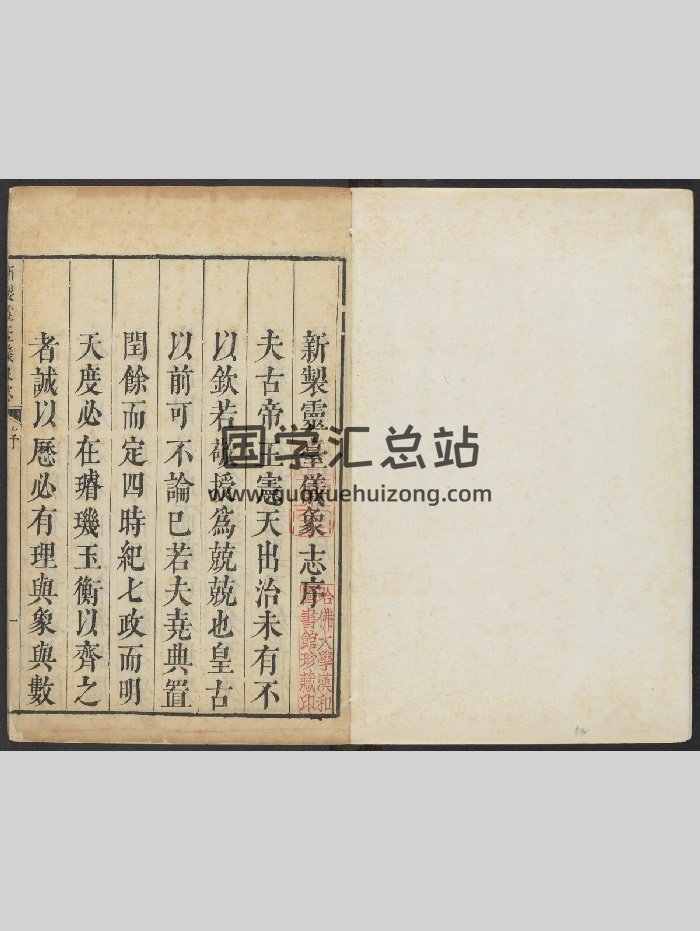 新製靈臺儀象志序
夫古帝王憲天出治未有不
以欽若敬授爲兢兢也皇古
以前可不論已若夫堯典置
閏餘而定四時紀七政而明
天度必在璿璣玉衡以齊之
者誠以曆必有理與象與數
哈佛大學漢和
圖書館珍藏印
国学汇总站
www.guoxuehuizong.com